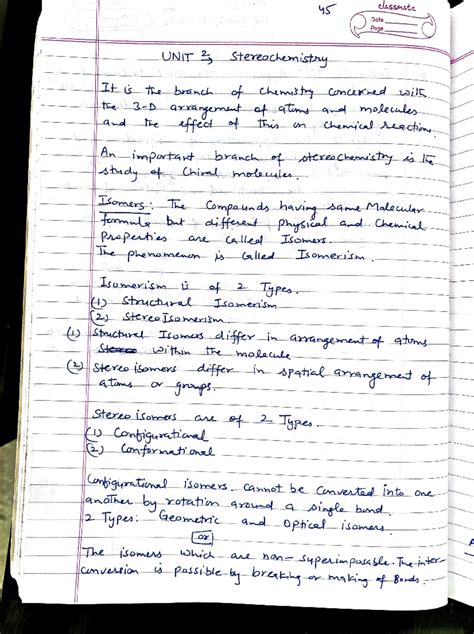 45
classmate
Date
Page
UNIT 2, Stereochemistry
It is the branch of Chemistry Concerned with
the 3-D arrangement of atoms and molecules
and the effect of this on Chemical reactions.
An important branch of stereochemistry is the
study of Chiral molecules.
Isomers: The Compounds having same Molecular
formula but different physical and Chemical
Properties are Called Isomers.
The phenomenon is Called Isomerism.
Isomerism is of 2 Types.
(1) Structural Isomerism
(2) StereoIsomerism
(1) Structural Isomers differ in arrangement of atoms
within the molecule
(2) Stereoisomers differ in spatial arrangement of
atoms or groups.
Stereoisomers are of 2 Types.
(1) Configurational
(2) Conformational
Configurational isomers. Cannot be Converted into one
another by rotation around a single bond.
2 Types: Geometric and Optical isomers.
or
The isomers which are non-superimposable. The inter-
conversion is possible by breaking or making of Bonds.